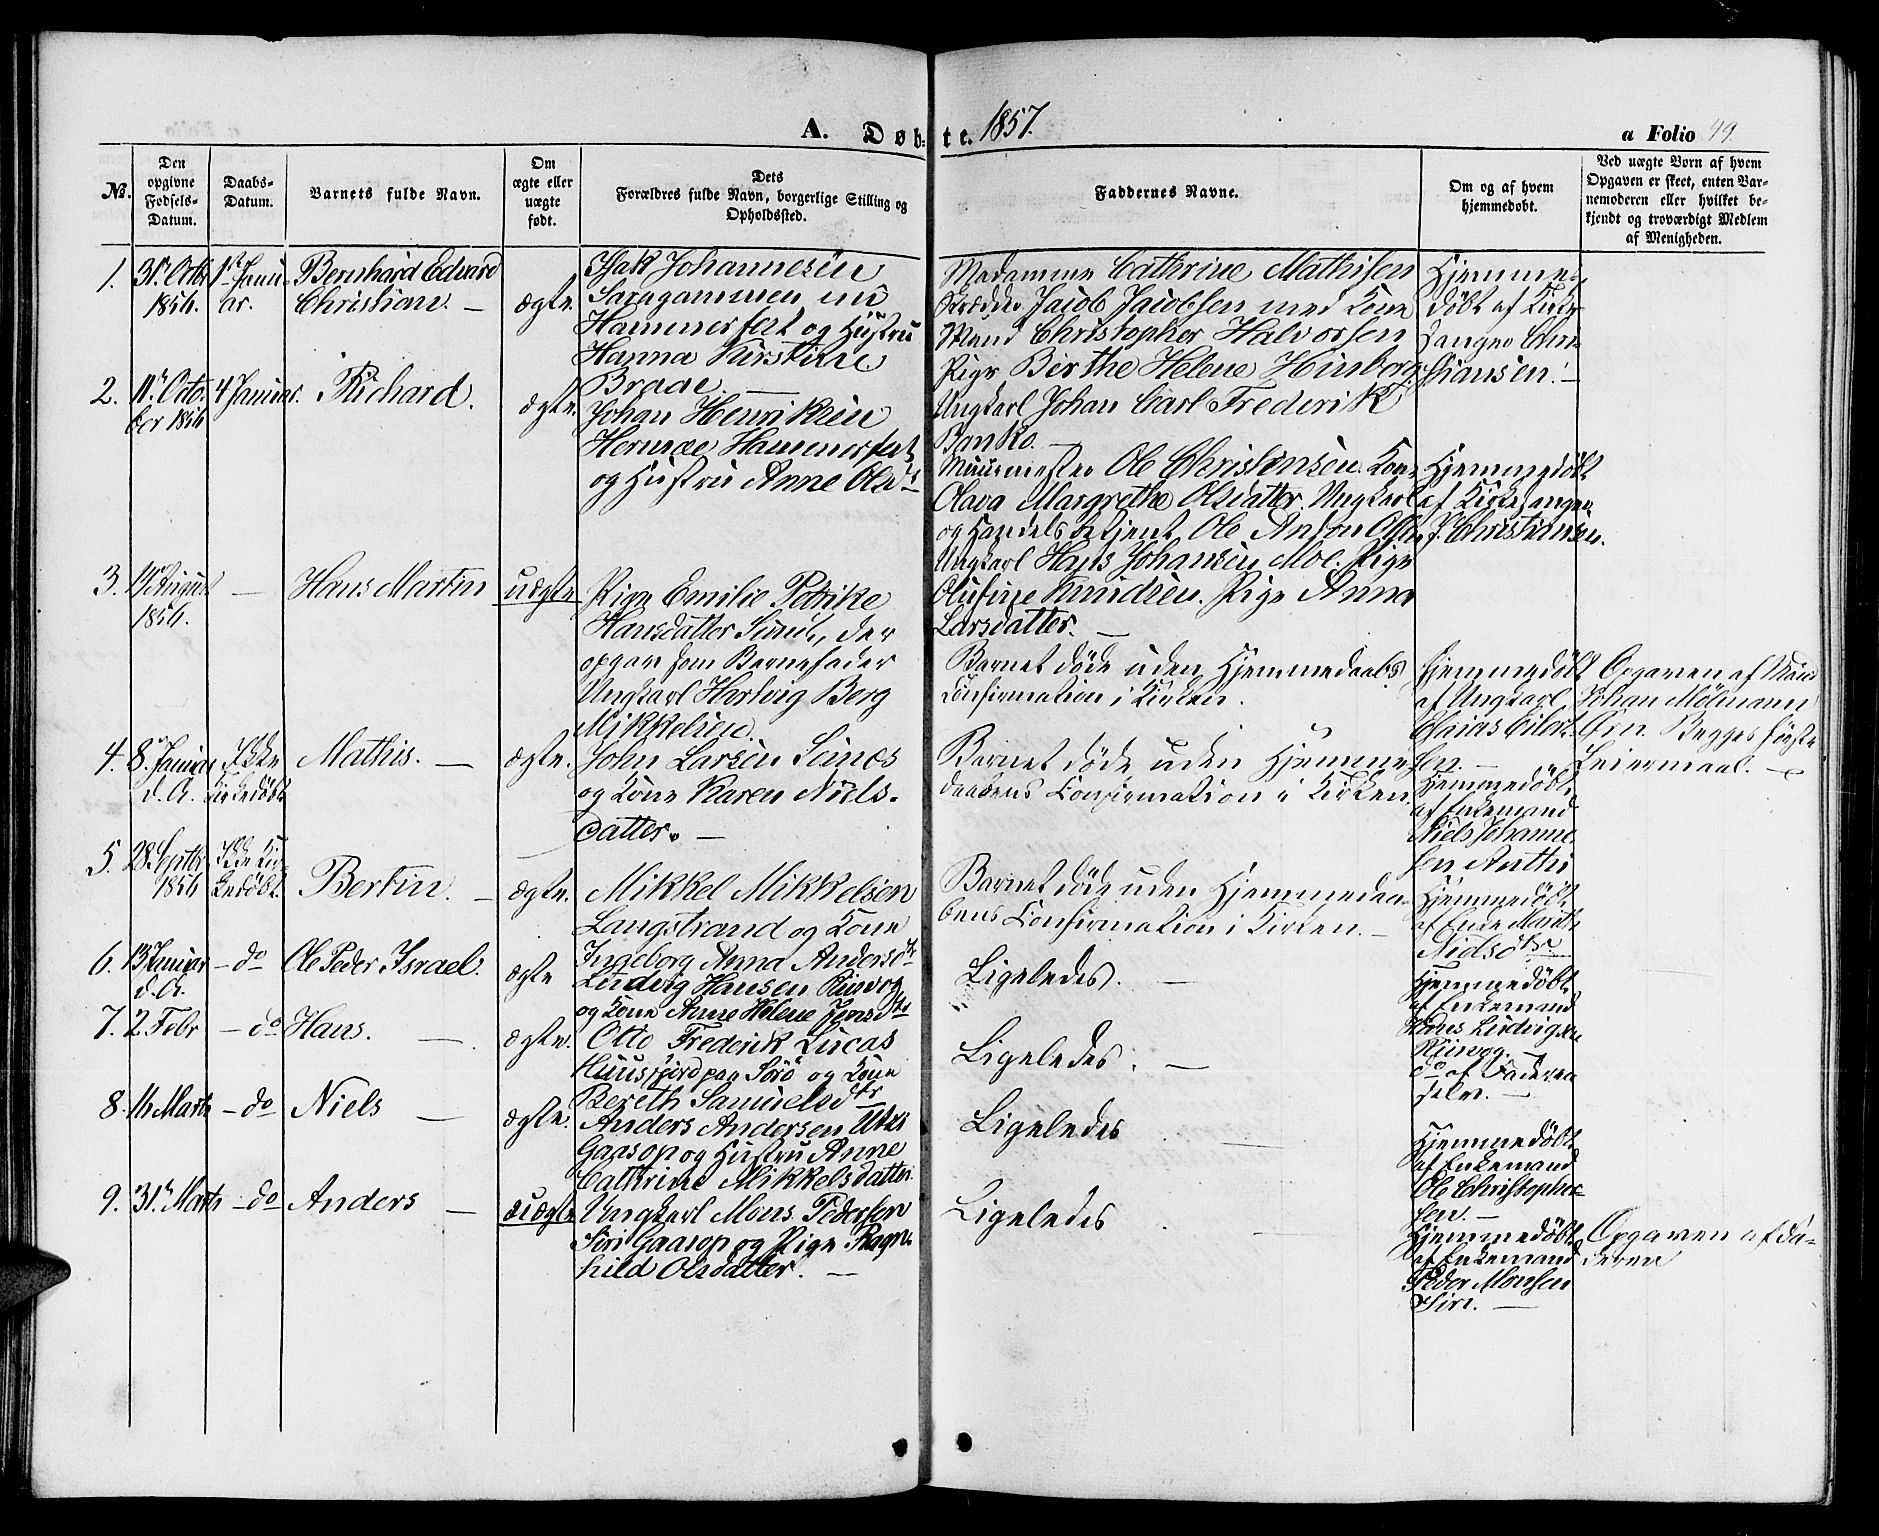 A. Døb-
te. 1857.
a Folio 49.
No.
Den opgivne Fødsels-Datum.
Daabs-Datum.
Barnets fulde Navn.
Om ægte eller uægte født.
Dets Forældres fulde Navn, borgerlige Stilling og Opholdssted.
Faddernes Navne.
Om og af hvem hjemmedøbt.
Ved uægte Børn af hvem Opgaven er skeet, enten Barnemoderen eller hvilket bekjendt og troværdigt Medlem af Menigheden.
1.
31te Octbr
1856.
1ste Janu-
ar.
Bernhard Edvard
Christian. —
ægte.
Isak Johannesen
Saragammen
Hammerfest og Hustru
Hanna Kirstine
Braae. —
Madamme Cathrine Mathisen
Jacob Jacobsen med Kone
Mand Christopher Halvorsen
Pige Birthe Helene
Ungkarl Johan Carl Frederik
Banko. —
Hjemme-
døbt af Kirke-
sanger Chri-
stiansen. —
2.
11te Octo-
ber 1856
4 Januar.
Richard.
ægte.
Johan Henriksen
Hammerfest
og Hustru Anne Olsdtr
Muurmester Ole Christensen. Kone
Olava Margrethe Olsdatter. Ungkarl
og Handelsbetjent Ole Anton
Ungkarl Hans Johansen Moe. Pige
Olufine Knudsen. Pige Anna
Larsdatter. —
Hjemmedøbt
af Kirkesanger
J. Christiansen.
3.
August
1856.
—
Hans Martin
uægte
Pige Emilie Petrike
Hansdatter der
opgav som Barnefader
Ungkarl Hartvig Berg
Mikkelsen.
Barnet døde uden Hjemmedaabs
Confirmation i Kirken.
Hjemmedøbt
af Ungkarl
Opgaven af Mand
Johan Mølmann
Begges første
Leiermaal. —
4.
8. Januar
d. A.
Ikke
Kirkedøbt
Mathis. —
ægte.
John Larsen
og Kone Karen Niels-
datter. —
Barnet døde uden Hjemme-
daabens Confirmation i Kirken.
Hjemmedøbt
af Enkemand
Niels Johanne-
sen
5.
28. Septbr
1856
Ikke Kir-
kedøbt.
Bertin. —
ægte.
Mikkel Mikkelsen
Langstrand og Kone
Ingeborg Anna Andersdtr
Barnet døde uden Hjemmedaa-
bens Confirmation i Kirken. —
Hjemmedøbt
af Enke Marith
Nielsdtr
6.
13 Januar
d. A.
— do
Ole Peder Israel.
ægte
Ludvig Hansen
og Kone Anne Helene Jensdtr
Ligeledes. —
Hjemmedøbt
af Enkemand
Hans Ludvigsen
7.
2 Febr
— do
Hans. —
ægte.
Otto Frederik Lucas
Huusfjord paa Sørø og Kone
Bereth Samuelsdtr
Ligeledes. —
do af Faderen
selv. —
8.
Marts
— do
Niels —
ægte.
Anders Andersen
Gaasop og Hustru Anne
Cathrine Mikkelsdatter
Ligeledes
Hjemmedøbt
af Enkemand
Ole Christopher-
sen. —
9.
31te Marts
— do
Anders —
uægte
Ungkarl Mons Pedersen
Siri Gaasop og Pige Ragn-
hild Olsdatter. —
Ligeledes
Hjemmedøbt
af Enkemand
Peder Monsen
Siri. —
Opgaven af Fa-
deren